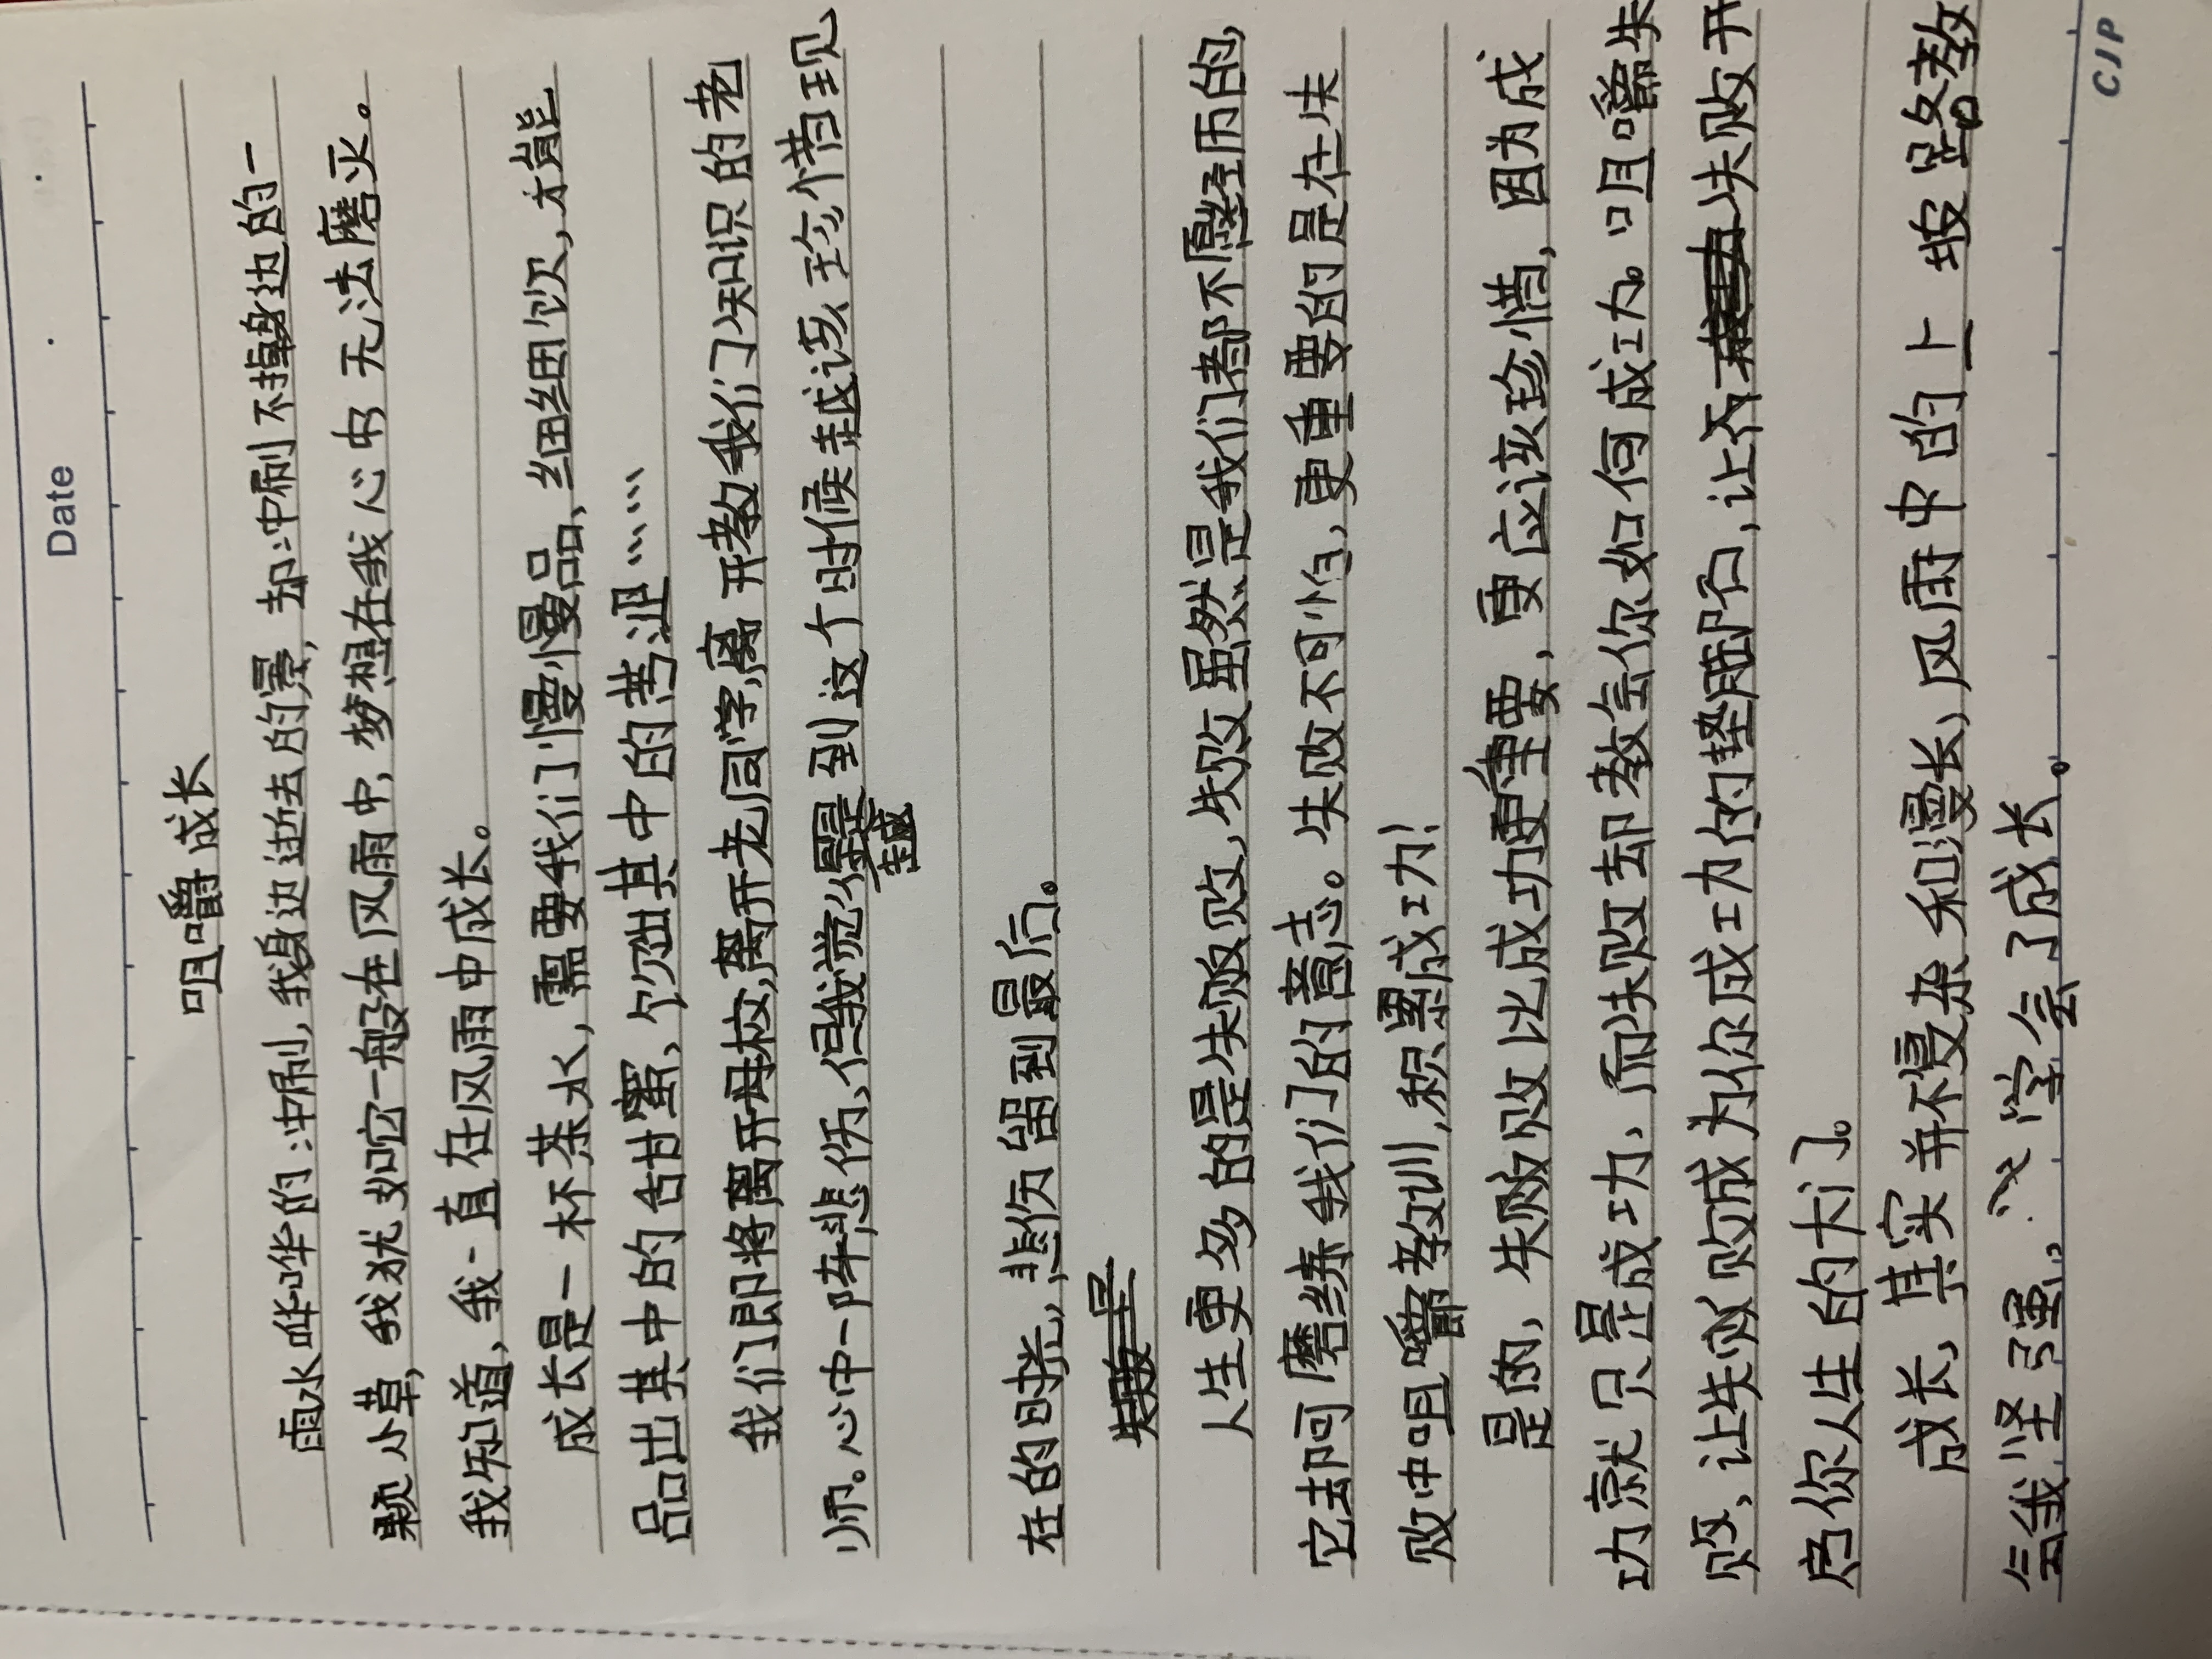 Date
咀嚼成长
雨水哗哗的冲刷,我身边逝去的景,却冲刷不掉身边的一
颗小草,我犹如它一般在风雨中,梦想在我心中无法磨灭。
我知道,我一直在风雨中成长。
成长是一杯茶水,需要我们慢慢品、细细饮,才能
品出其中的甘蜜、勿出其中的苦涩……
我们即将离开母校,离开老同学,离开教我们知识的老
师。心中一阵悲伤、但我觉得到这个时候越该珍惜现
越
在的时光,悲伤留到最后。
人生更多的是失败,失败虽然是我们都不愿经历的,
它却可磨练我们的意志。失败不可怕,更重要的是在失
败中咀嚼教训,积累成功!
是的,失败比成功更重要,更应该珍惜,因为成
功就只是成功,而失败却教会你如何成功。咀嚼失
败,让失败成为你成功的垫脚石,让失败开
启你人生的大门。
成长,其实并不复杂和漫长,风雨中的上坡路教
会我坚强。学会了成长。
CJP